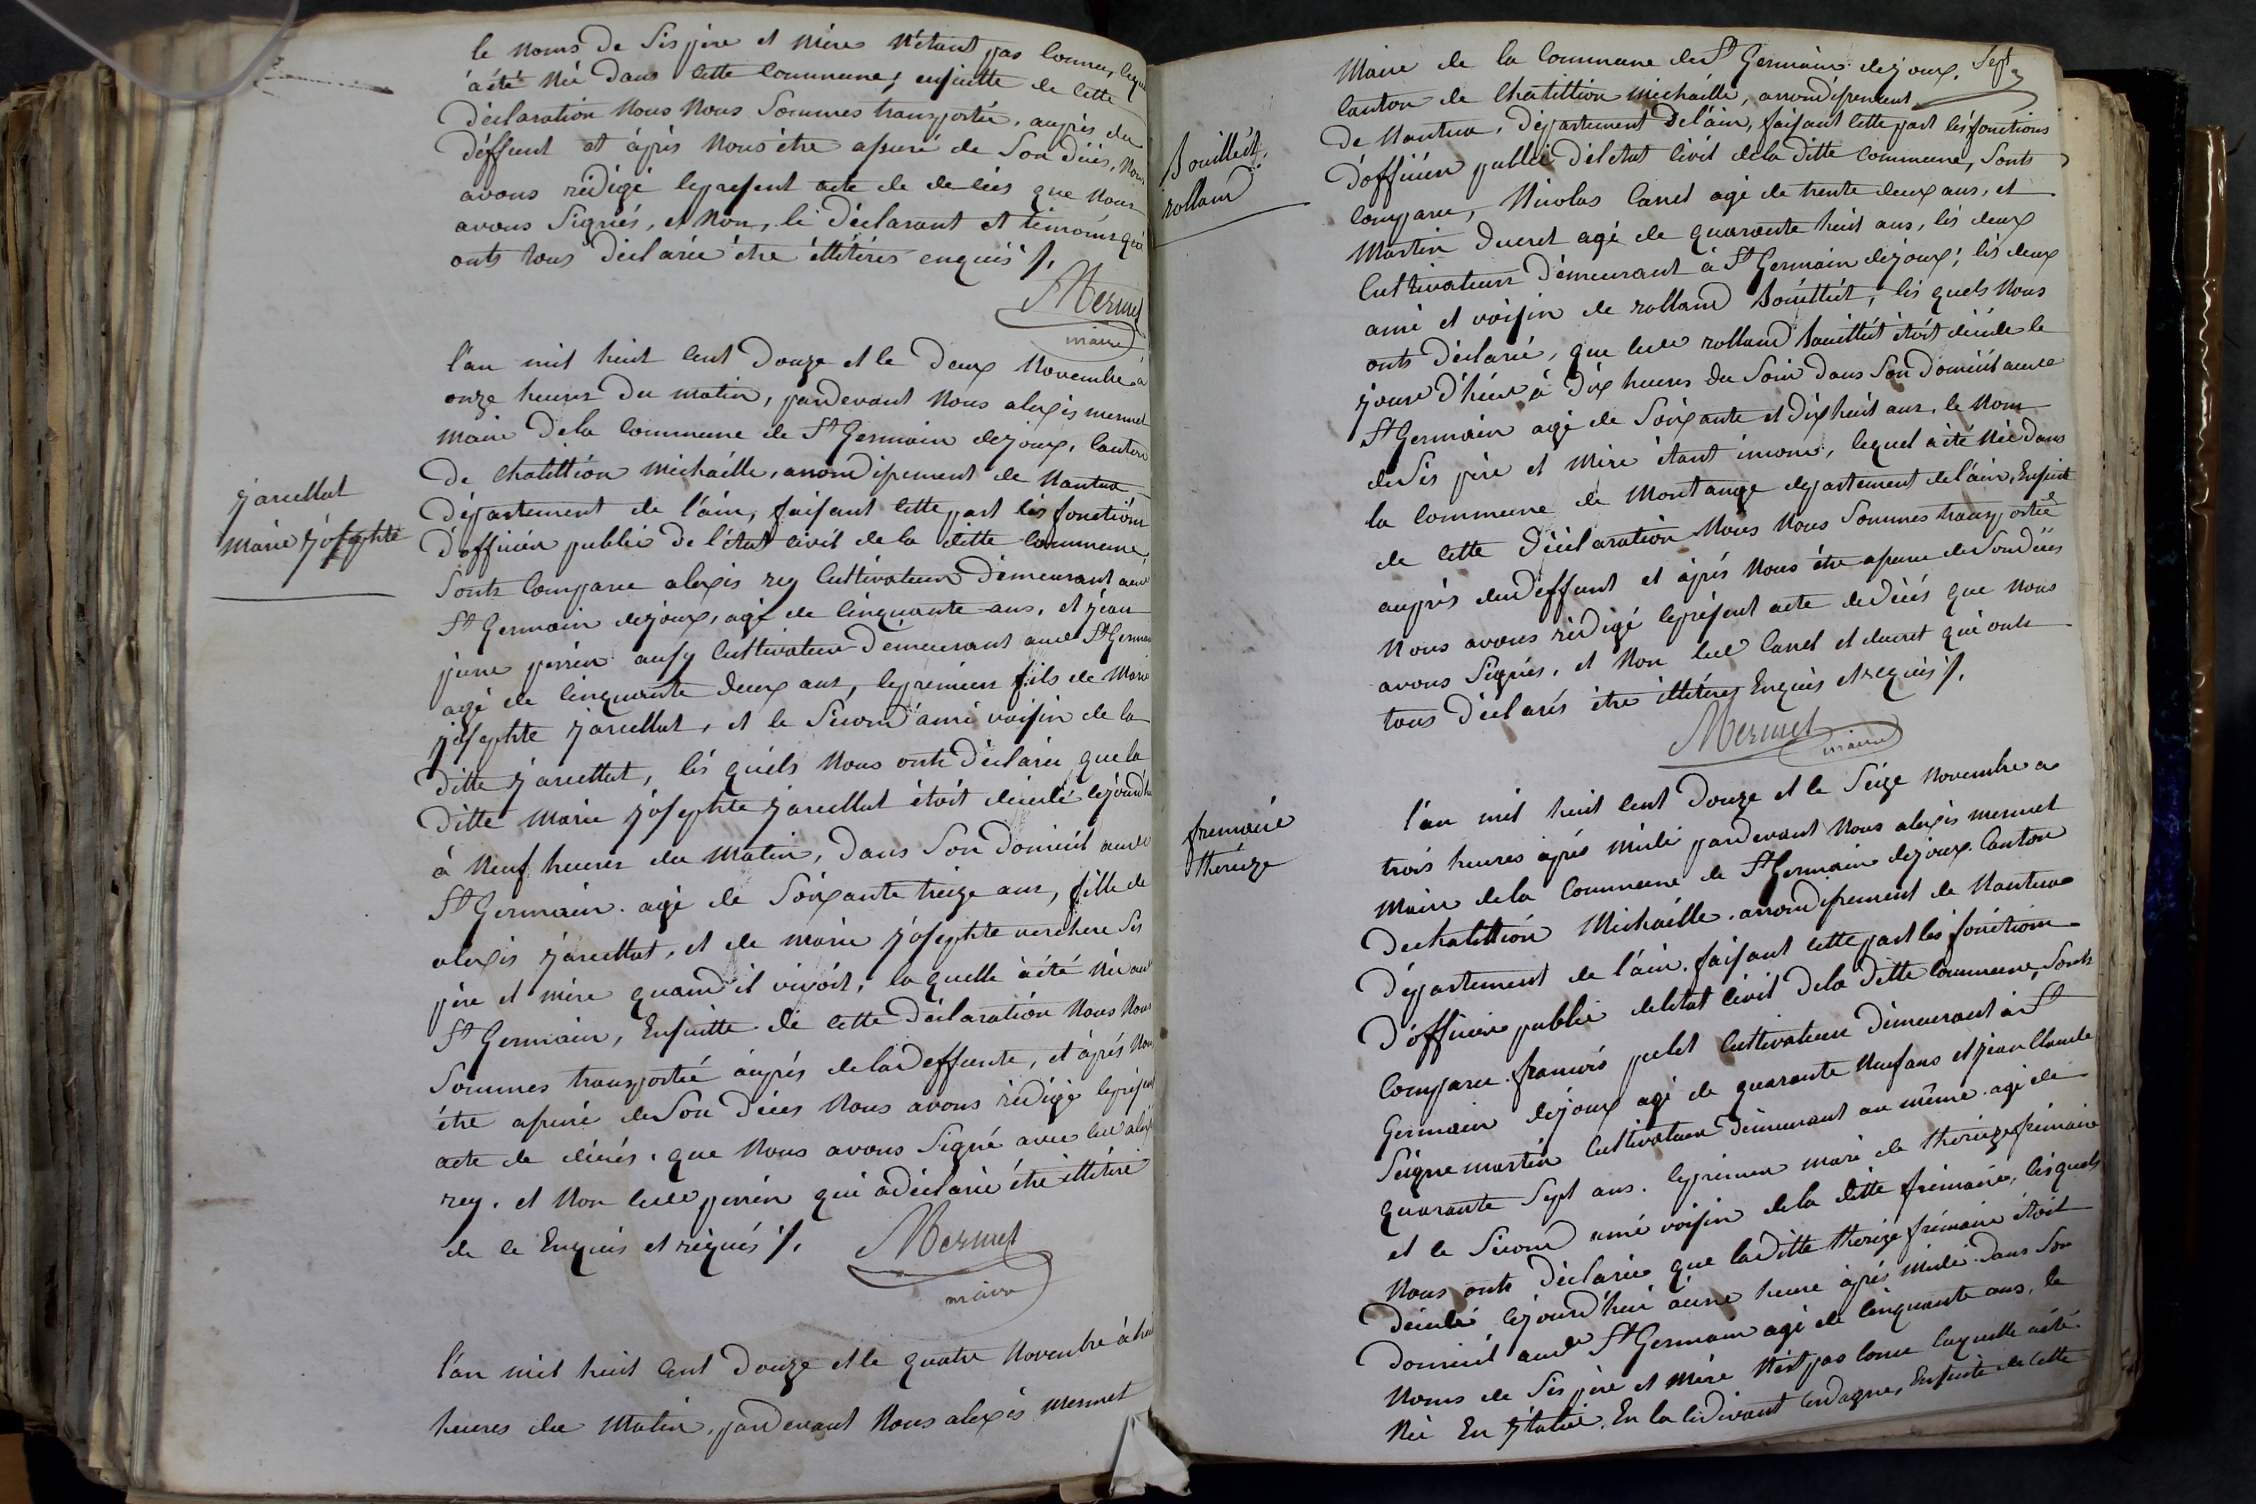 le noms de sis père et mère n'étant pas connu, lequel
à été né dans cette commune, ensuitte de cette
déclaration nous nous sommes transportée, auprès du
déffunt et après nous être assuré de son décés, nous
avons rédigé le present acte de decées que nous
avons signés, et non, le déclarant et témoins qui
onts tous déclarée être illitérés enquis /.
Mermet
maire
l'an mil huit cent douze et le deux novembre à
onze heures du matin, pardevant nous alexis mermet
maire dela commune de St Germain dejoux, canton
de chatillion michaille, arrondissement de nantua
département de l'ain, faisant cette part lés fonctions
d'officier public de l'état civil de la ditte commune
sonts comparu alexis rey cultivateur demeurant audt
St Germain dejoux, agé de cinquante ans, et jean
perrin aussy cultivateur demeurant audt St Germain
agé de cinquante deux ans, le premier fils de marie
josephte jarcellat, et le second amé voisin de la
ditte jarcellat, lés quéls nous onts déclarée que la
ditte marie josephte jarcellat étoit décédé cejourd'hui
à neuf heures du matin, dans son domicil audt
St Germain. agé de soixante treize ans, fille de
alexis jarcellat, et de marie josephte verchere sés
père et mère quand il vivoit, laquelle àété née audt
St Germain, ensuitte de cette déclaration nous nous
sommes transportée auprés deladeffunte, et aprés nous
être assuré deson décés nous avons rédigé leprésent
acte de décés. que nous avons signé avec ledt alexis
rey. et non ledt perrin qui adéclarée être illitéré
de ce enquis et requis /.
Mermet
maire
l'an mil huit cent douze et le quatre novembre à huit
heures du matin, pardevant nous alexis mermet
jarcellat
marie josephte
maire de la commune de St Germain dejoux, Sept
canton de chatillion michaille, arrondissement
de nantua, département del'ain, faisant cette part lés fonctions
d'officier public del'état civil dela ditte commune, sonts
comparu, nicolas canet agé de trente deux ans, et
martin ducret agé de quarante huit ans, lés deux
cultivateurs demeurant à St Germain déjoux, lés deux
amé et voisin de rolland bouillét, lés quels nous
onts déclarée, que ledt rolland bouillét étoit décédé le
jour d'hier à dix heures du soir dans son domicil audt
St Germain agé de soixante et dix huit ans, le nom
de sés père et mère étant inconu, lequel àété née dans
la commune de montange département del'ain, Ensuite
de cette déclaration nous nous sommes transportée
auprès dudeffunt et aprés nous être assuré de son décés
nous avons rédigé leprésent acte dedécés que nous
avons signés, et non ledt canet et ducret qui onts
tous déclarés être illitérés enquis et requis /.
Mermet
maire
Bouillét
rolland
l'an mil huit cent douze et le seize novembre a
trois heures aprés midi pardevant nous alexis mermet
maire dela commune de St Germain déjoux. canton
dechatillion michaille. arrondissement de nantua
département de l'ain. faisant cette part lés fonctions
d'officier public deletat civil dela ditte commune, sonts
comparu. francois pelet cultivateur demeurant à St
Germain déjoux agé de quarante neuf ans et jean claude
seigne martin cultivateur demeurant au même. agé de
quarante sept ans. le premier mari de thereize frémaire
et le second amé voisin dela ditte frémaire, lésquels
nous onts déclarée que laditte thereize frémaire étoit
décédé cejourd'hui àune heure aprés midi. dans son
domicil audt St Germain agé de cinquante ans, le
noms de sés père et mère n'est pas conu laquelle àété
née En jtalie. En la cidivant cerdagne, Ensuite de cette
fremaire
thereize